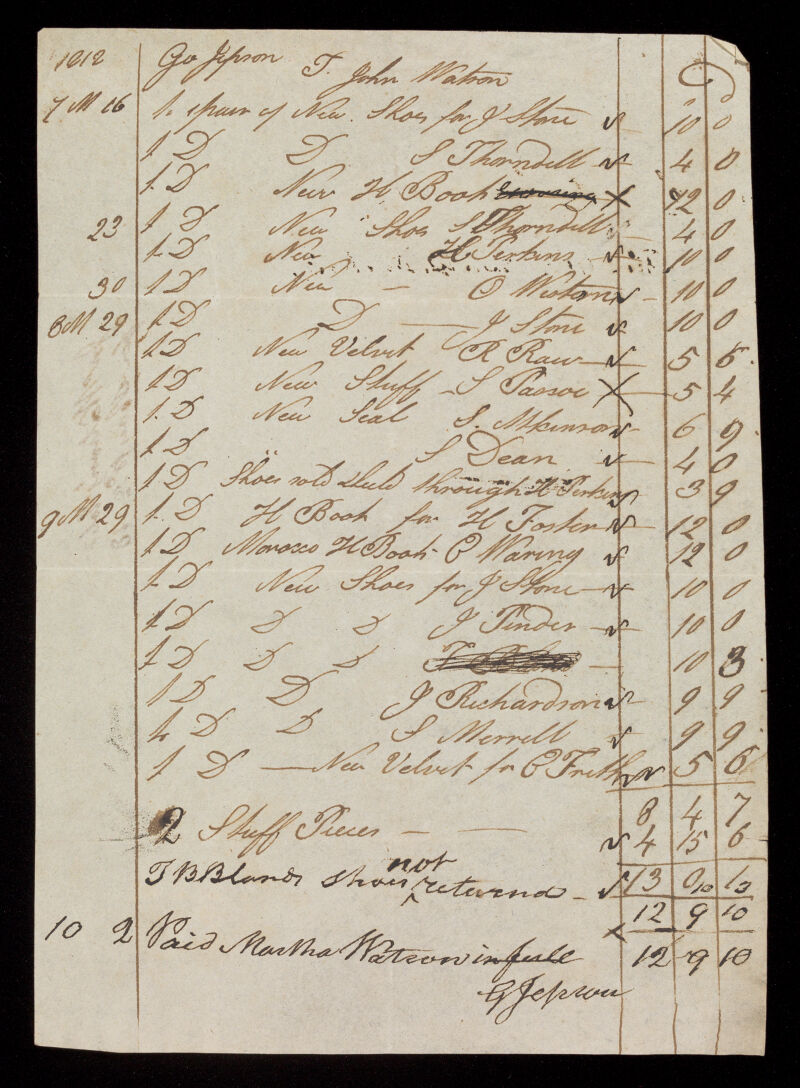 1818 Geo Jepson To John Watson
7 M 16 1 pair of New Shoes for J Stone 10 0
1 D D S Thorndell 4 0
1 D New H Book 12 0
23 1 D New Shoes S Thorndell 4 0
1 D New H Perkins 10 0
30 1 D New — 10 0
8 M 29 1 D D — J Stone 10 0
1 D New Velvet R Raw 5 6
1 D New Stuff S Pascoe 5 4
1 D New Seal S. Atkinson 6 9
1 D " S Dean 4 0
1 D Shoes through H Perkins 3 9
9 M 29 1 D H Book for H Foster 12 0
1 D Morocco H Book C Waring 12 0
1 D New Shoes for J Stone 10 0
1 D D D J Pinder 10 0
1 D D D 10 3
1 D D J Richardson 9 9
1 D D S Merrell 9 9
1 D — New Velvet for C Frith 5 6
8 4 7
2 Stuff Pieces — — 4 15 6
T B Blands shoes not returnd 13 0 1
10
12 9 10
10 2 Paid Martha Watson in full 12 9 10
G Jepson